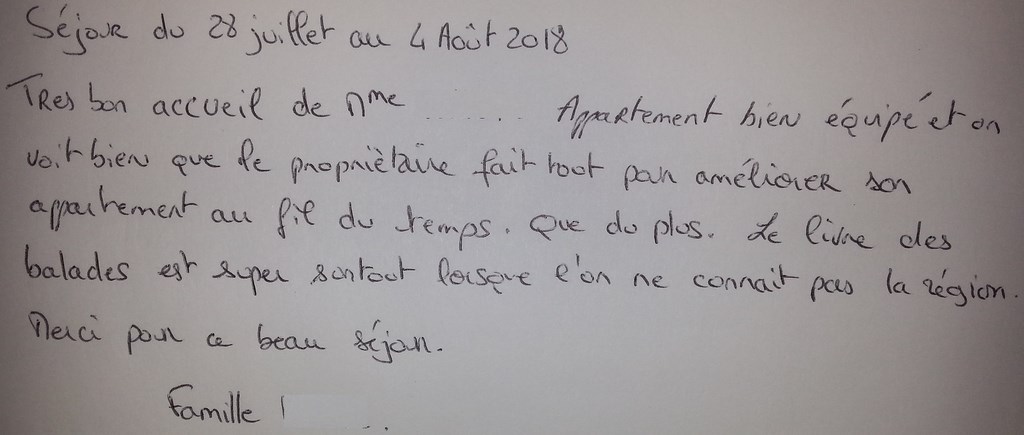 Séjour du 28 juillet au 4 Août 2018
Très bon accueil de Mme
Appartement bien équipé et on
voit bien que le propriètaire fait tout pour améliorer son
appartement au fil du temps. Que du plus. Le livre des
balades est super surtout lorsque l'on ne connait pas la région.
Merci pour ce beau séjour.
Famille